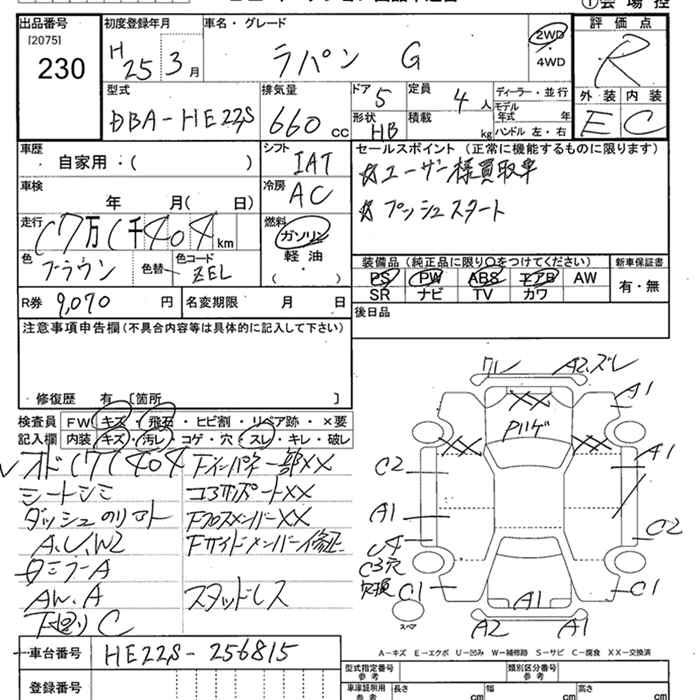 出品番号 初度登録年月 車名・グレード 評価点
[2075]
230
H 25 3月 ラパン G 2WD ・ 4WD R
外装 内装
E C
型式 排気量 ドア 5 定員 4人 ディーラー・並行
DBA-HE22S 660cc 形状 HB 積載 kg モデル年式 年
ハンドル 左・右
車歴 自家用・( ) シフト IAT セールスポイント (正常に機能するものに限ります)
☆ユーザー様買取車
☆プッシュスタート
車検 年 月( 日) 冷房 AC
走行 17万1千404km 燃料 ガソリン・軽油・( )
色 ブラウン 色替 色コード ZEL
装備品 (純正品に限り○をつけてください) 新車保証書
PS PW ABS エアB AW 有・無
SR ナビ TV カワ
R券 9,070円 名変期限 月 日 後日品
注意事項申告欄 (不具合内容等は具体的に記入して下さい)
修復歴 有 〔箇所 〕
検査員記入欄 FW キズ・飛石・ヒビ割・リペア跡・×要
内装 キズ・汚レ・コゲ・穴・スレ・キレ・破レ
オド171404 Fインパネ一部XX
シートシミ コアサポートXX
ダッシュのリアト FクロスメンバーXX
A.U.W2 Fサイドメンバー修正
タミラーA
AW.A スタッドレス
下廻りC
ワレ A2.ズレ
A1
XX
Pハゲ
XX XX
C2 A1
A1
U4 C2
C3穴
欠損
C1 A1 C1
スペア A2 A1
A-キズ E-エクボ U-凹み W-補修跡 S-サビ C-腐食 XX-交換済
車台番号 HE22S-256815
型式指定番号 参考 類別区分番号 参考
登録番号 車庫証明用 参考 長さ cm 幅 cm 高さ cm